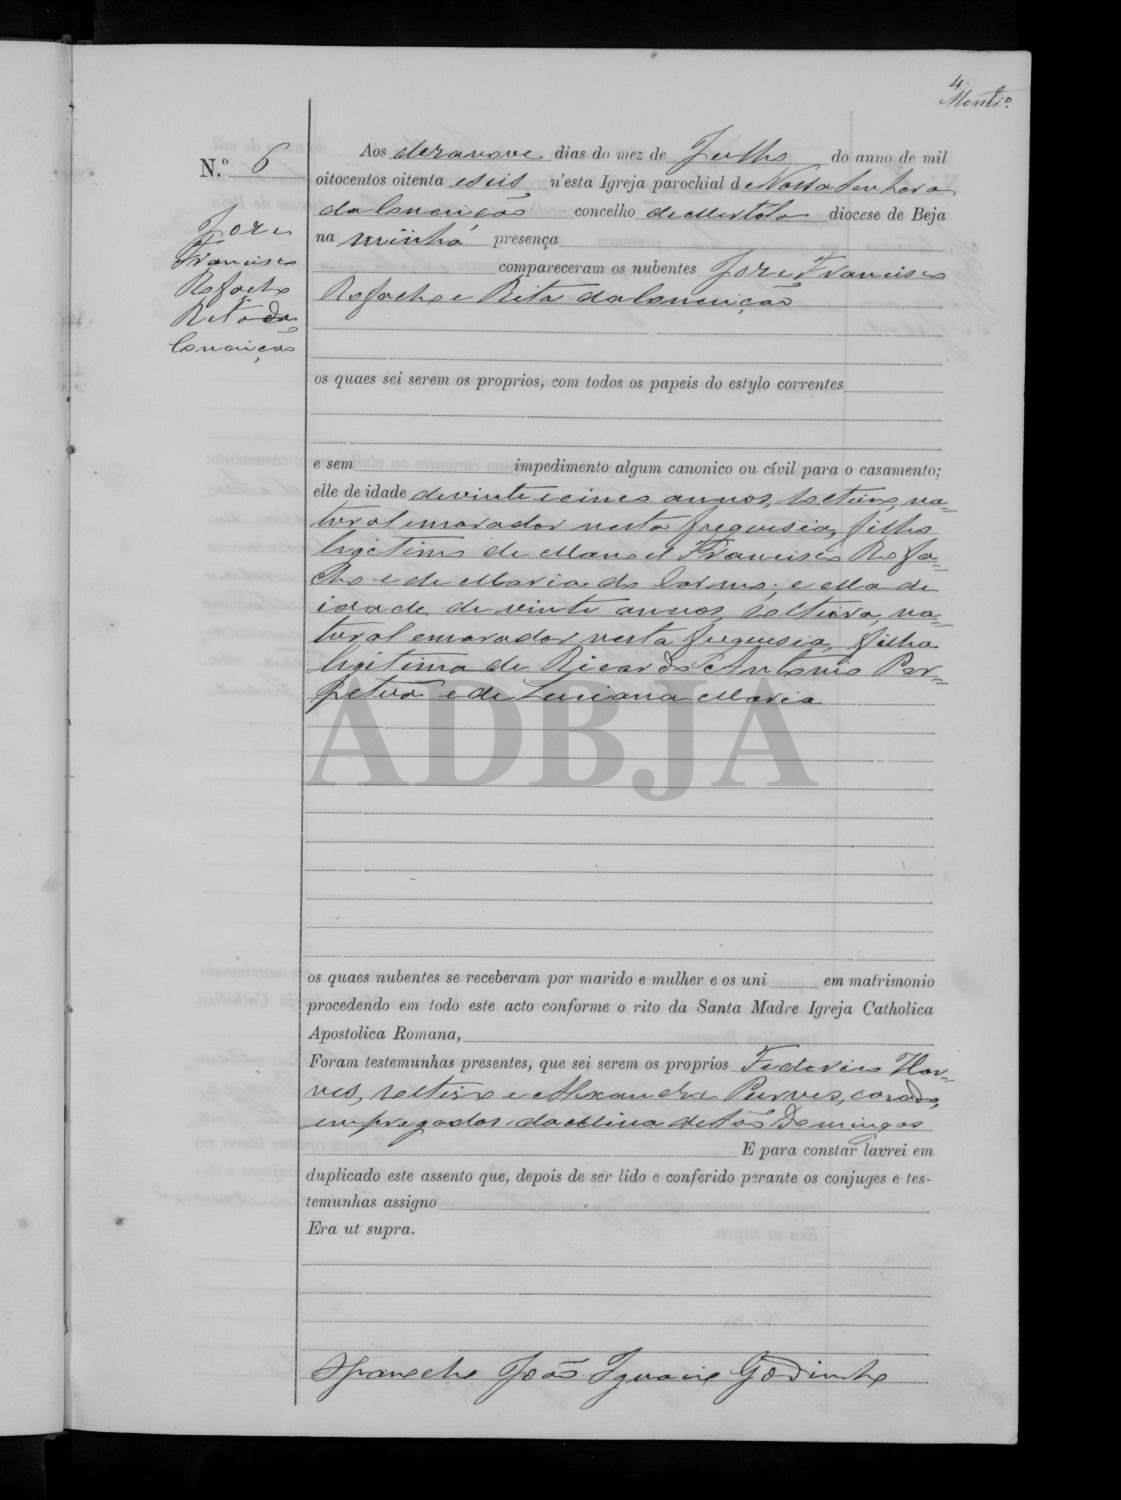 4
Monteº
N.º 6
Aos dezanove dias do mez de Julho do anno de mil
oitocentos oitenta e seis n'esta Igreja parochial de Nossa Senhora
da Conceição concelho de Mertola diocese de Beja
na minha presença
compareceram os nubentes Jose Francisco
Rofacho e Rita da Conceição
Jose
Francisco
Rofacho
Rita da
Conceição
os quaes sei serem os proprios, com todos os papeis do estylo correntes
e sem impedimento algum canonico ou civil para o casamento;
elle de idade de vinte e cinco annos, solteiro, na=
tural e morador nesta freguesia, filho
legitimo de Manoel Francisco Rofa=
cho e de Maria do Carmo; e ella de
idade de vinte annos, solteira, na=
tural e morador nesta freguesia, filha
legitima de Ricardo Antonio Per=
petua e de Luciana Maria
ADBJA
os quaes nubentes se receberam por marido e mulher e os uni em matrimonio
procedendo em todo este acto conforme o rito da Santa Madre Igreja Catholica
Apostolica Romana,
Foram testemunhas presentes, que sei serem os proprios Federico
solteiro e Alexandre casado,
empregados da Mina de São Domingos
E para constar lavrei em
duplicado este assento que, depois de ser lido e conferido perante os conjuges e tes-
temunhas assigno
Era ut supra.
João Ignacio Godinho